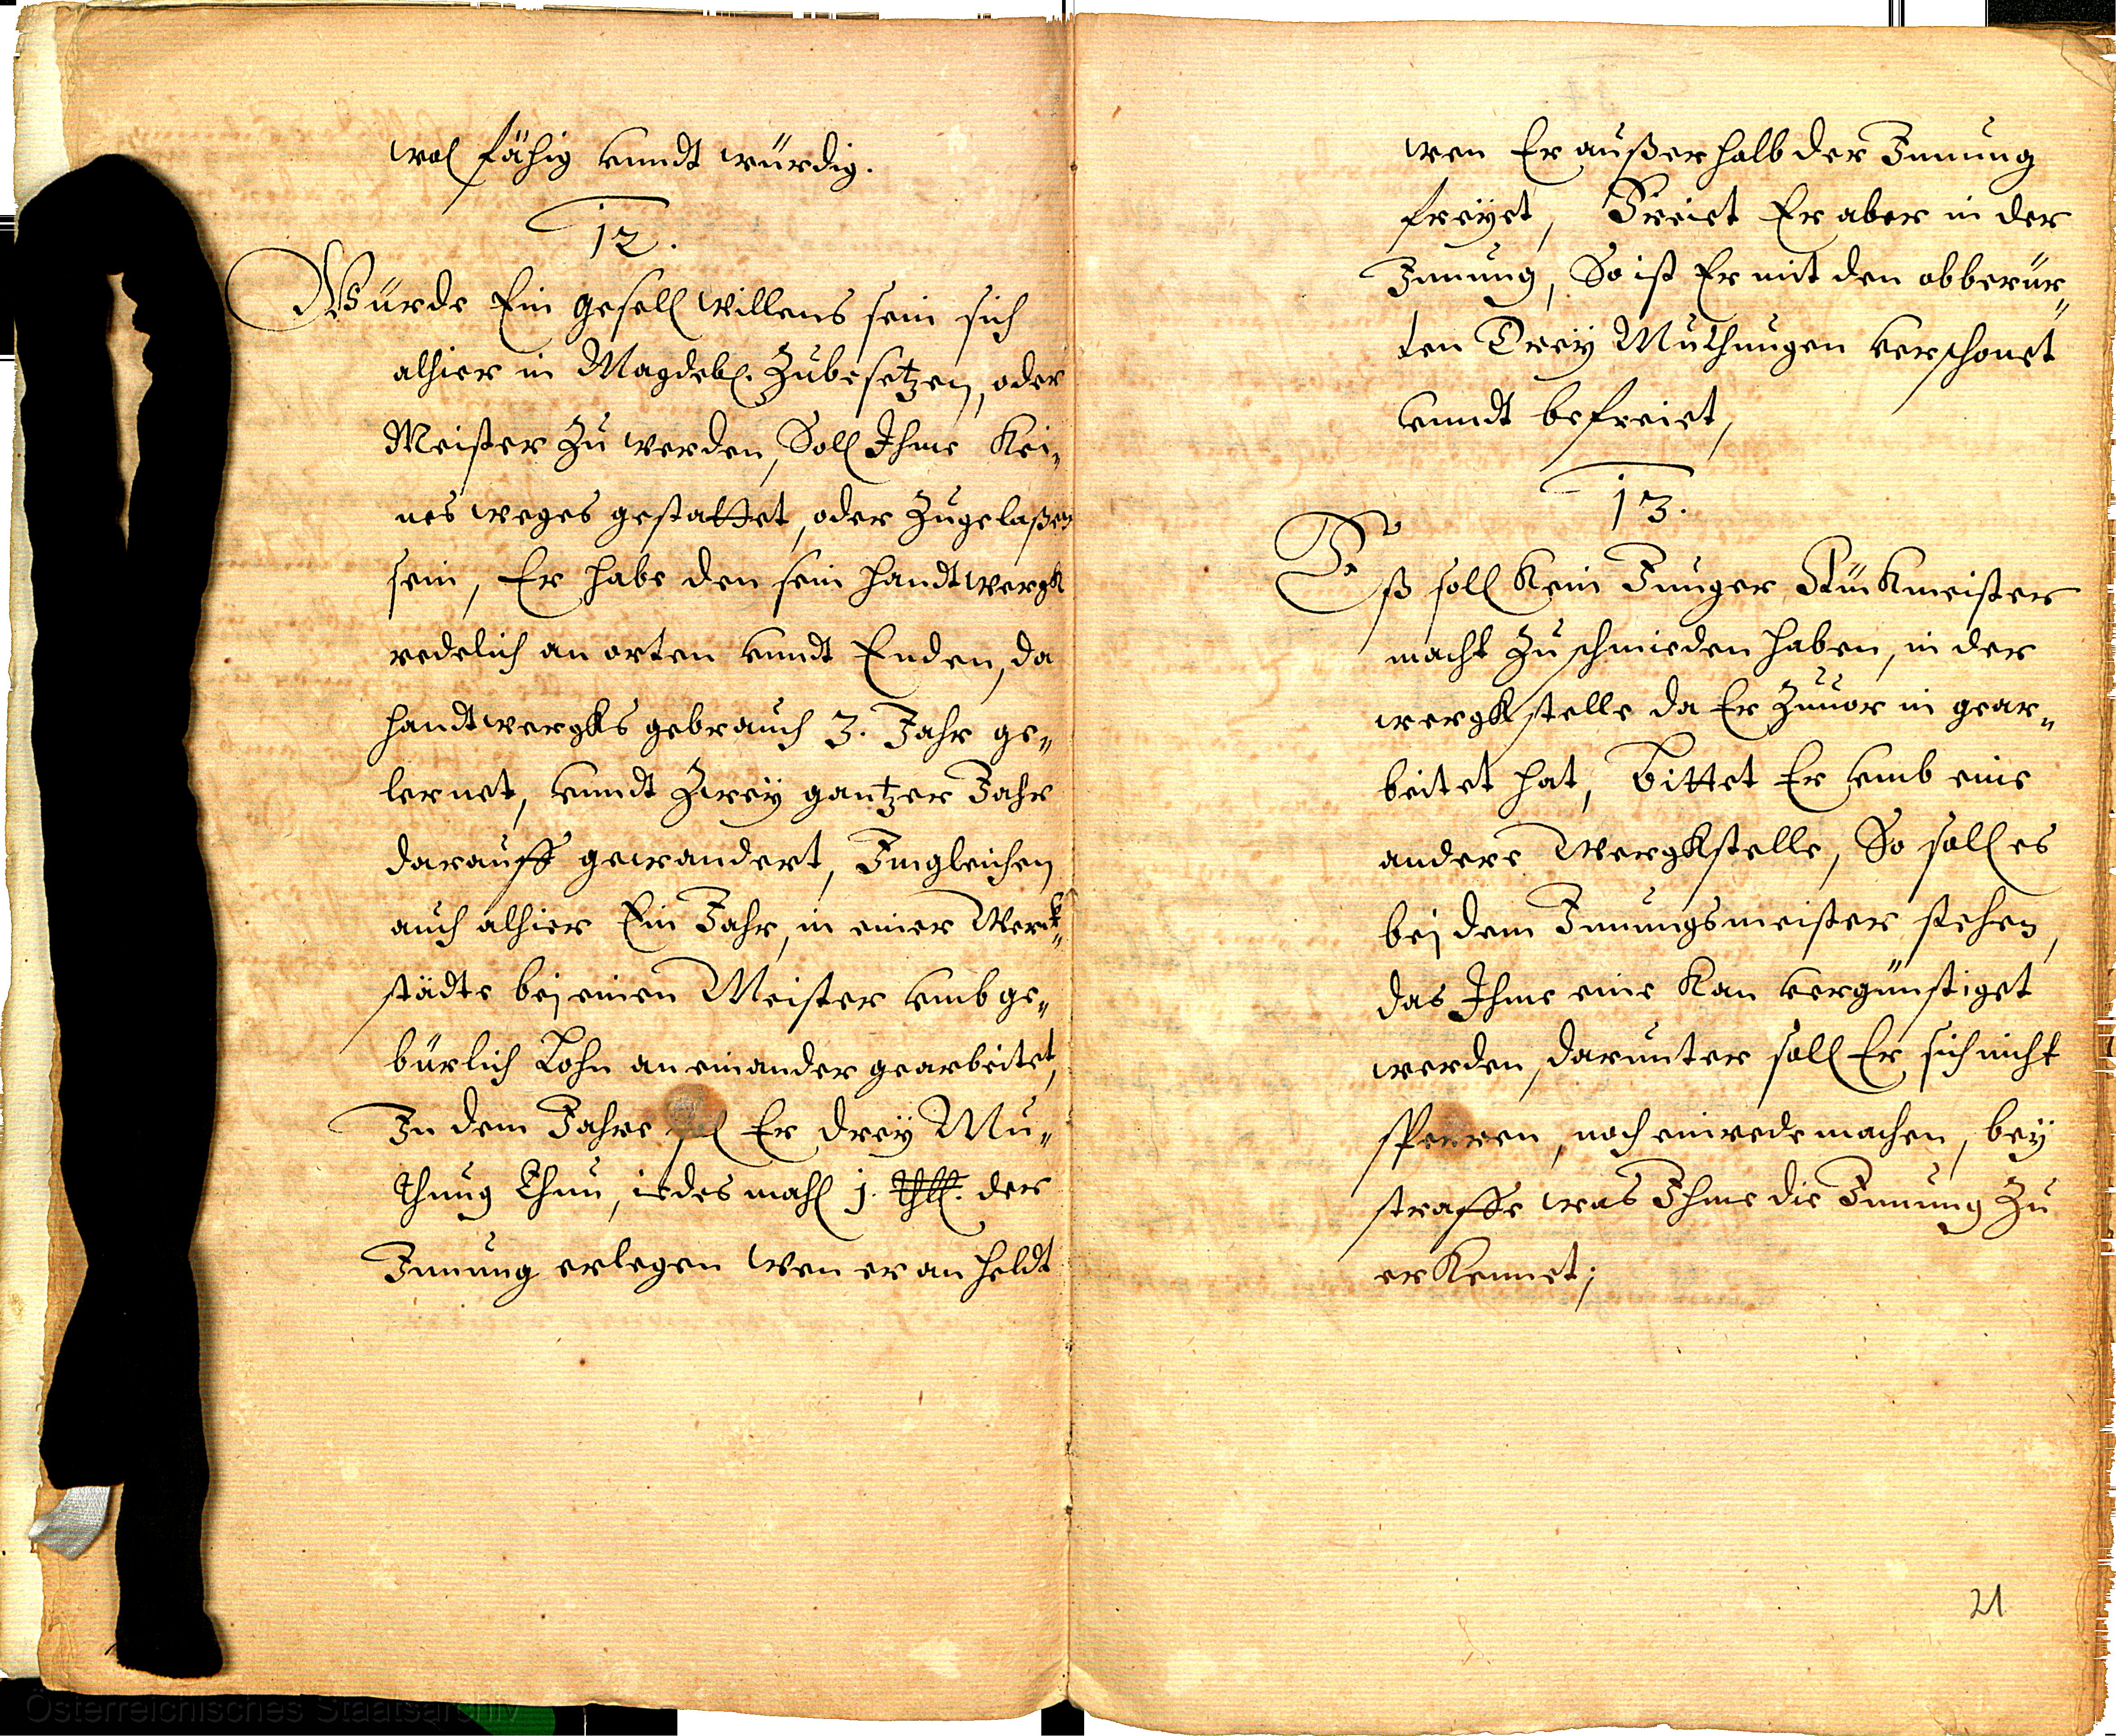 wol fähig vnndt würdig.
12.
Würde Ein gesell willens sein sich
alhier in Magdeb. Zubesetzen, oder
Meister Zu werden, Soll Ihme Kei„
nes weges gestattet, oder Zugelaßen
sein, Er habe den sein handtwergk
redelich an orten vnndt Enden, da
handtwergks gebrauch 3. Jahr ge„
lernet, vnndt Zwey gantzer Jahr
darauff gewandert, Imgleichen
auch alhier Ein Jahr, in einer Werck„
städte bei einen Meister vmb ge„
bürlich Lohn an einander gearbeitet,
In dem Jahre sol Er drey Mu„
thung Thun, iedes mahl 1. Thll. der
Innung erlegen wen er an heldt
wen Er außerhalb der Innung
freyet, Freiet Er aber in der
Innung, So ist Er mit den obberür„
ten Drey Muthungen verschonet
vnndt befreiet,
13.
Eß soll Kein Junger Stückmeister
macht Zu schmieden haben, in der
wergkstelle da Er Zuuor in gear„
beitet hat, Bittet Er vmb eine
andere Wergkstelle, So soll es
bei dem Innungsmeister stehen,
das Ihme eine Kan vergünstiget
werden, darunter soll Er sich nicht
sperren, noch einrede machen, bey
straffe was Ihme die Innung Zu
erKennet;
21
Österreichisches Staatsarchiv